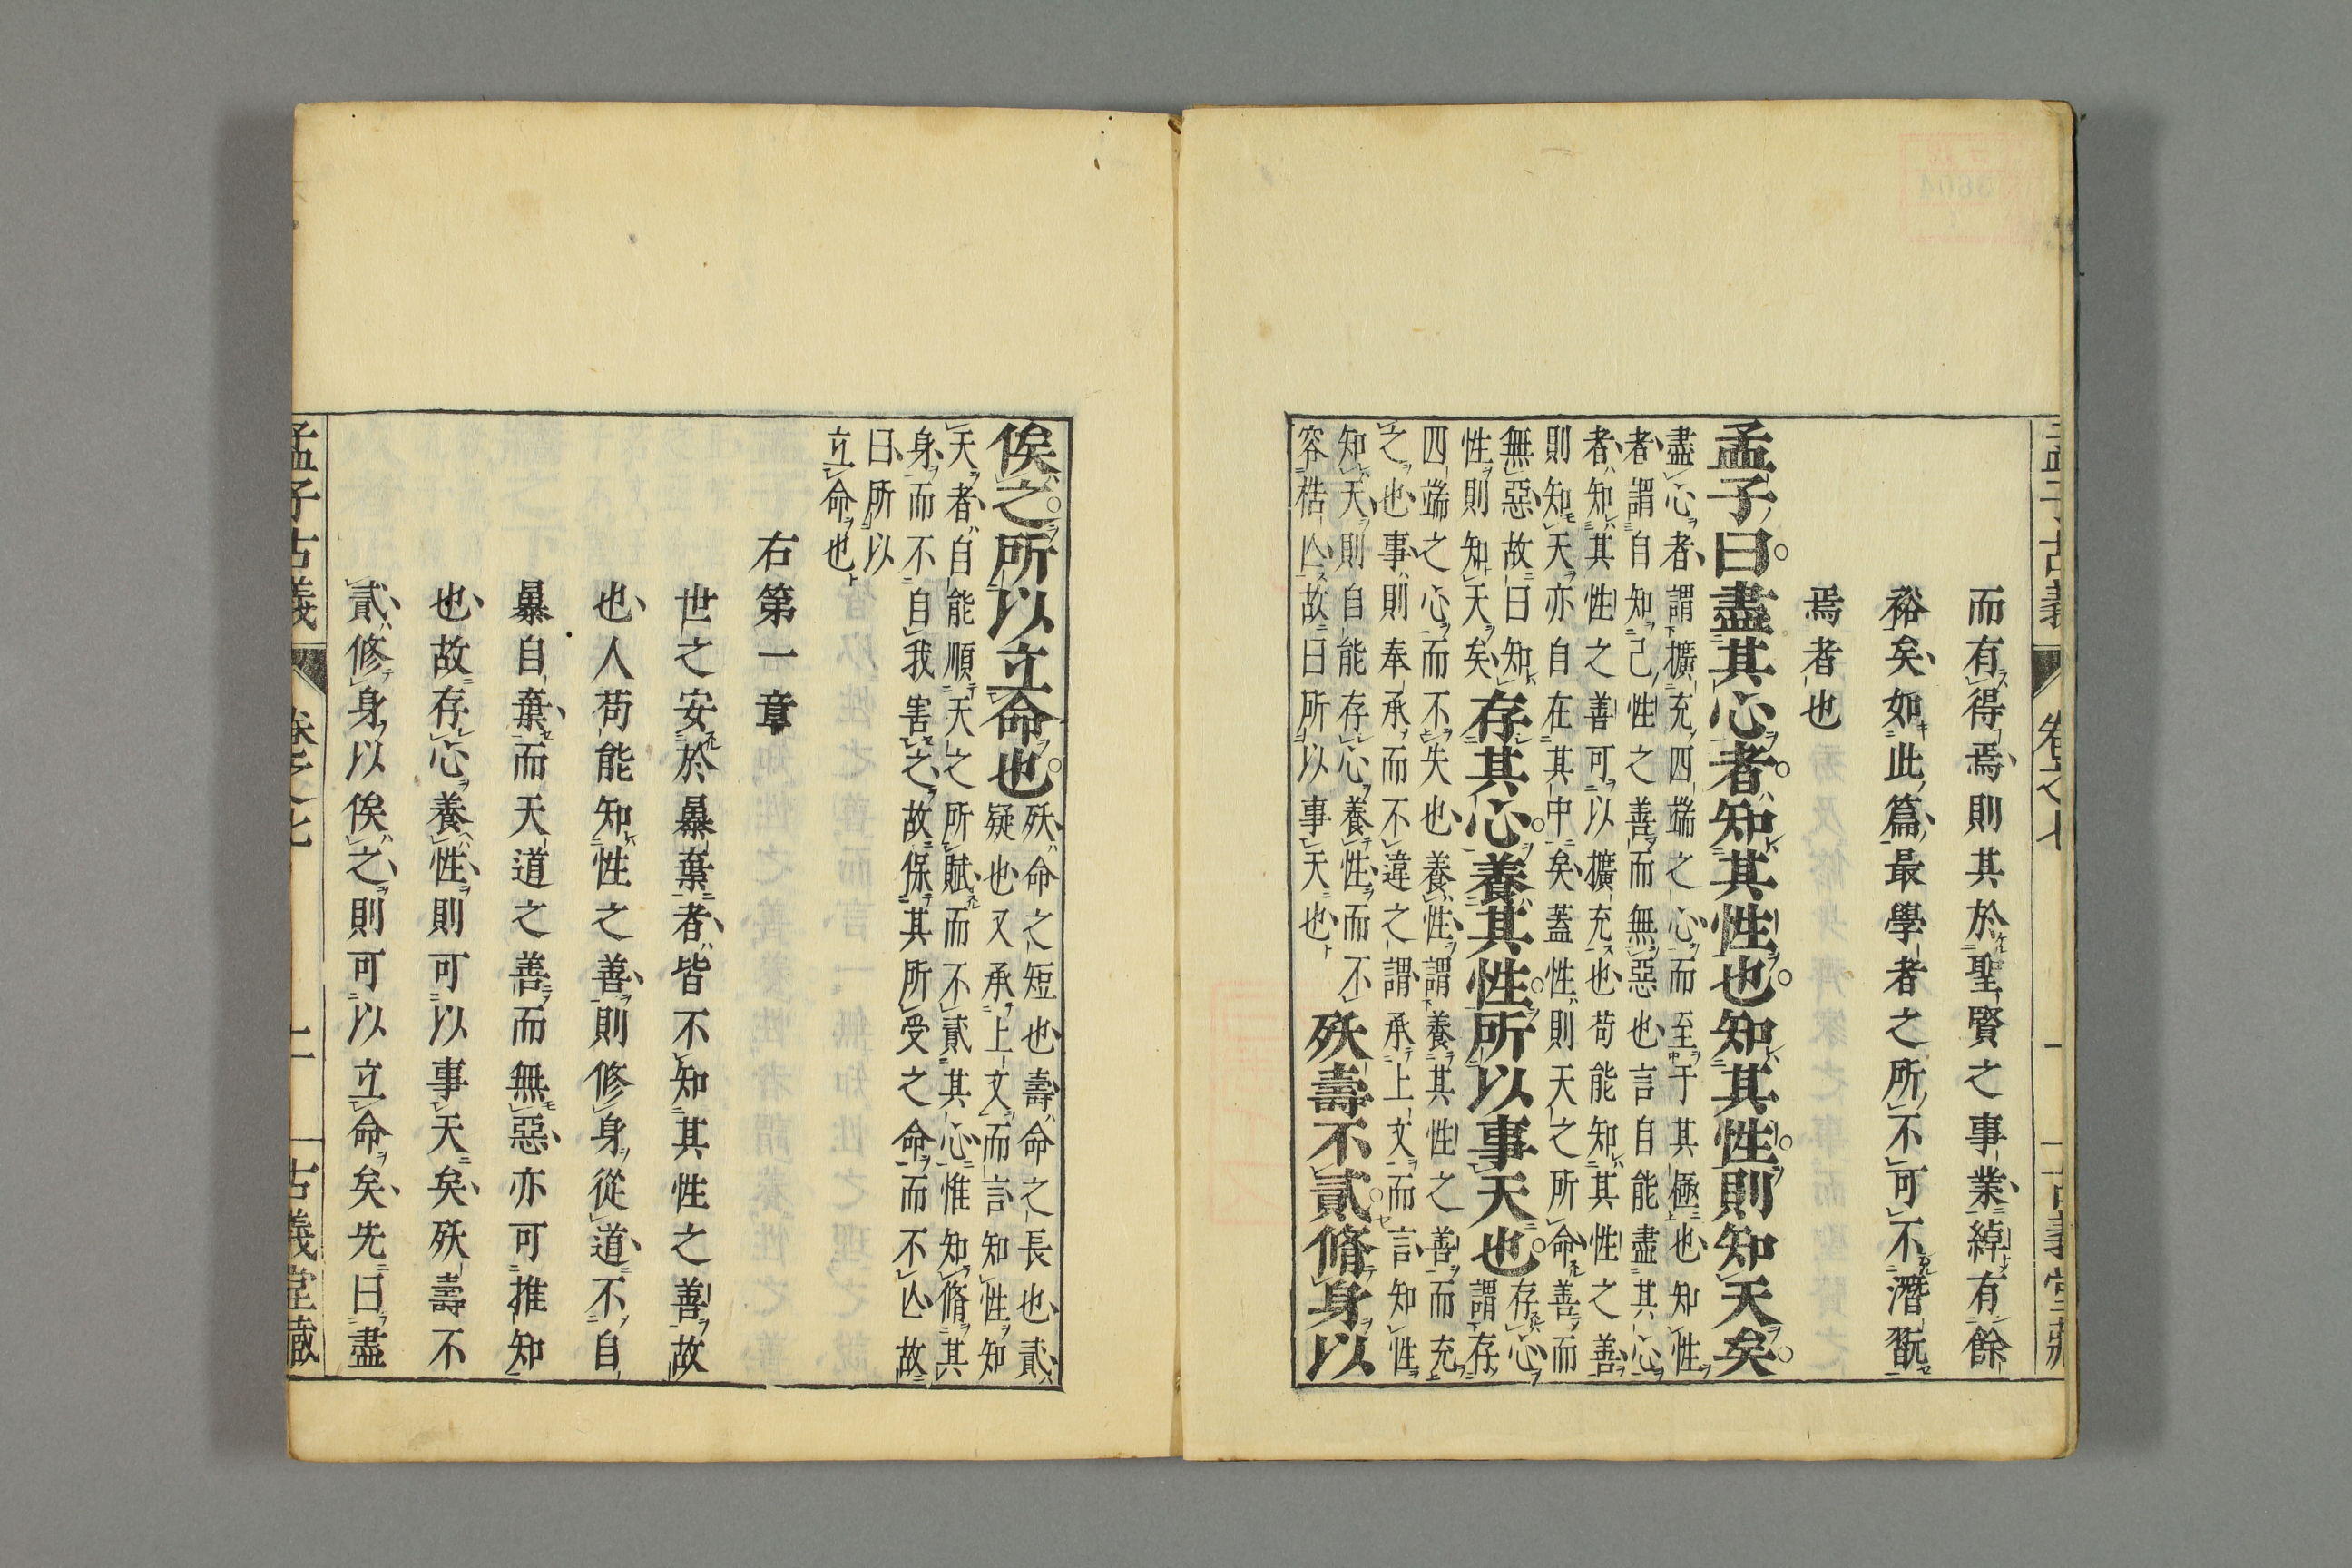 孟子古義 卷之七 一 古義堂藏
而有得焉則其於聖賢之事業綽有餘
裕矣如此篇最學者之所不可不潛翫
焉者也
孟子曰盡其心者知其性也知其性則知天矣
盡心者謂擴充四端之心而至于其極也知性
者謂自知己性之善而無惡也言自能盡其心
者知其性之善可以擴充也苟能知其性之善
則知天亦自在其中矣蓋性則天之所命善而
無惡故曰知
性則知天矣
存其心養其性所以事天也
存心
謂存
四端之心而不失也養性謂養其性之善而充
之也事則奉承而不違之謂承上文而言知性
知天則自能存心養性而不
容梏亾故曰所以事天也
殀壽不貳脩身以
俟之所以立命也
殀命之短也壽命之長也貳
疑也又承上文而言知性知
天者自能順天之所賦而不貳其心惟知脩其
身而不自我害之故保其所受之命而不亾故
曰所以
立命也
右第一章
世之安於暴棄者皆不知其性之善故
也人苟能知性之善則修身從道不自
暴自棄而天道之善而無惡亦可推知
也故存心養性則可以事天矣殀壽不
貳修身以俟之則可以立命矣先曰盡
孟子古義 卷之七 二 古義堂藏